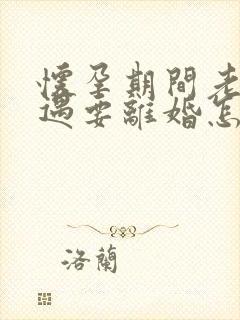 懷孕期間老
遇要離婚怎
洛蘭